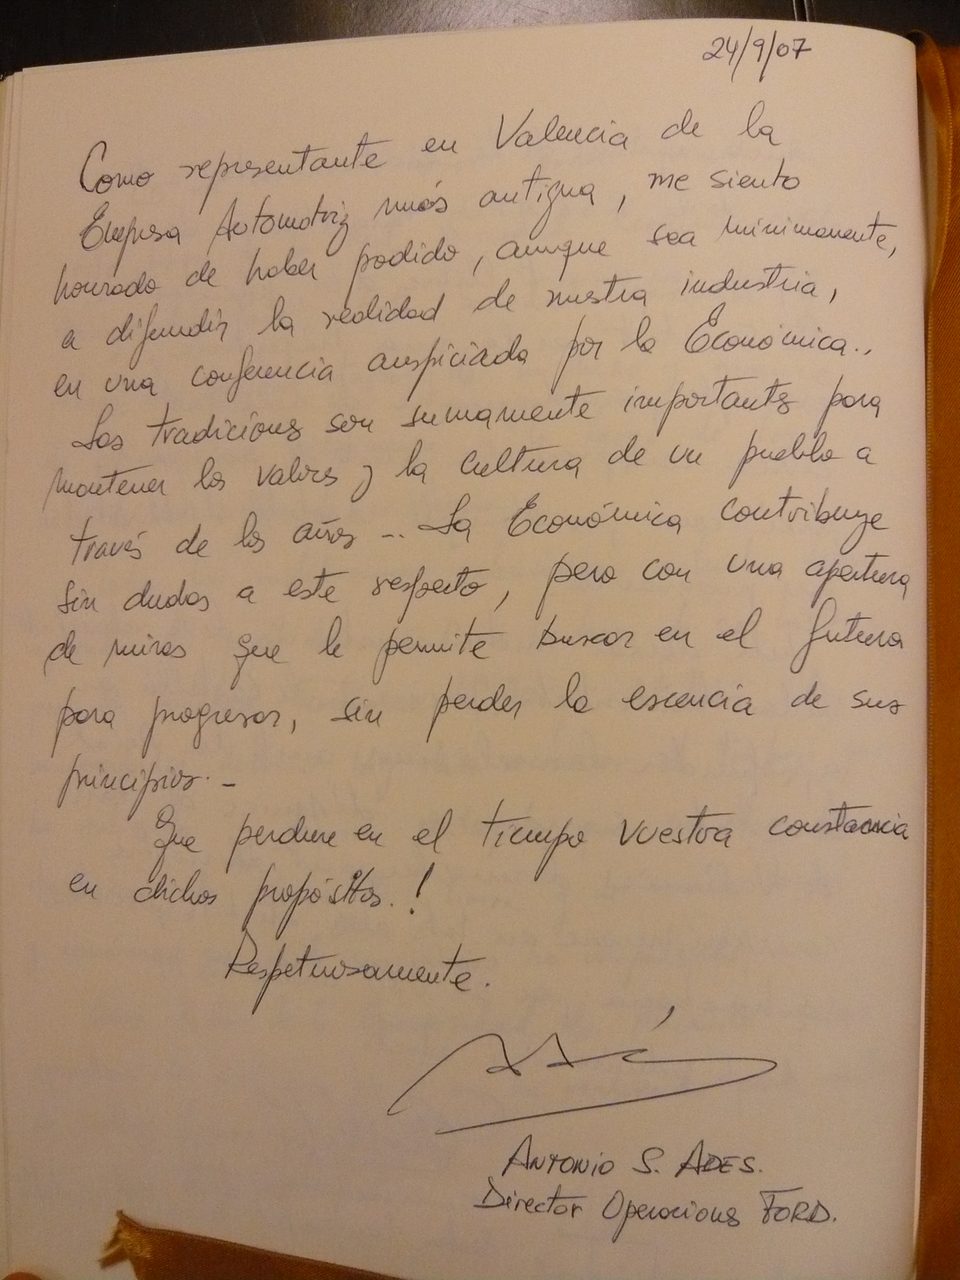 24/9/07
Como representante en Valencia de la
Empresa Automotriz más antigua, me siento
honrado de haber podido, aunque sea minimamente,
a difundir la realidad de nuestra industria,
en una conferencia auspiciada por la Económica..
Las tradiciones son sumamente importantes para
mantener los valores y la cultura de un pueblo a
través de los años... La Económica contribuye
sin dudas a este respecto, pero con una apertura
de miras que le permite buscar en el futuro
para progresar, sin perder la escencia de sus
principios.-
Que perdure en el tiempo vuestra constancia
en dichos propósitos.!
Respetuosamente.
ANTONIO S. ADES.
Director Operaciones FORD.